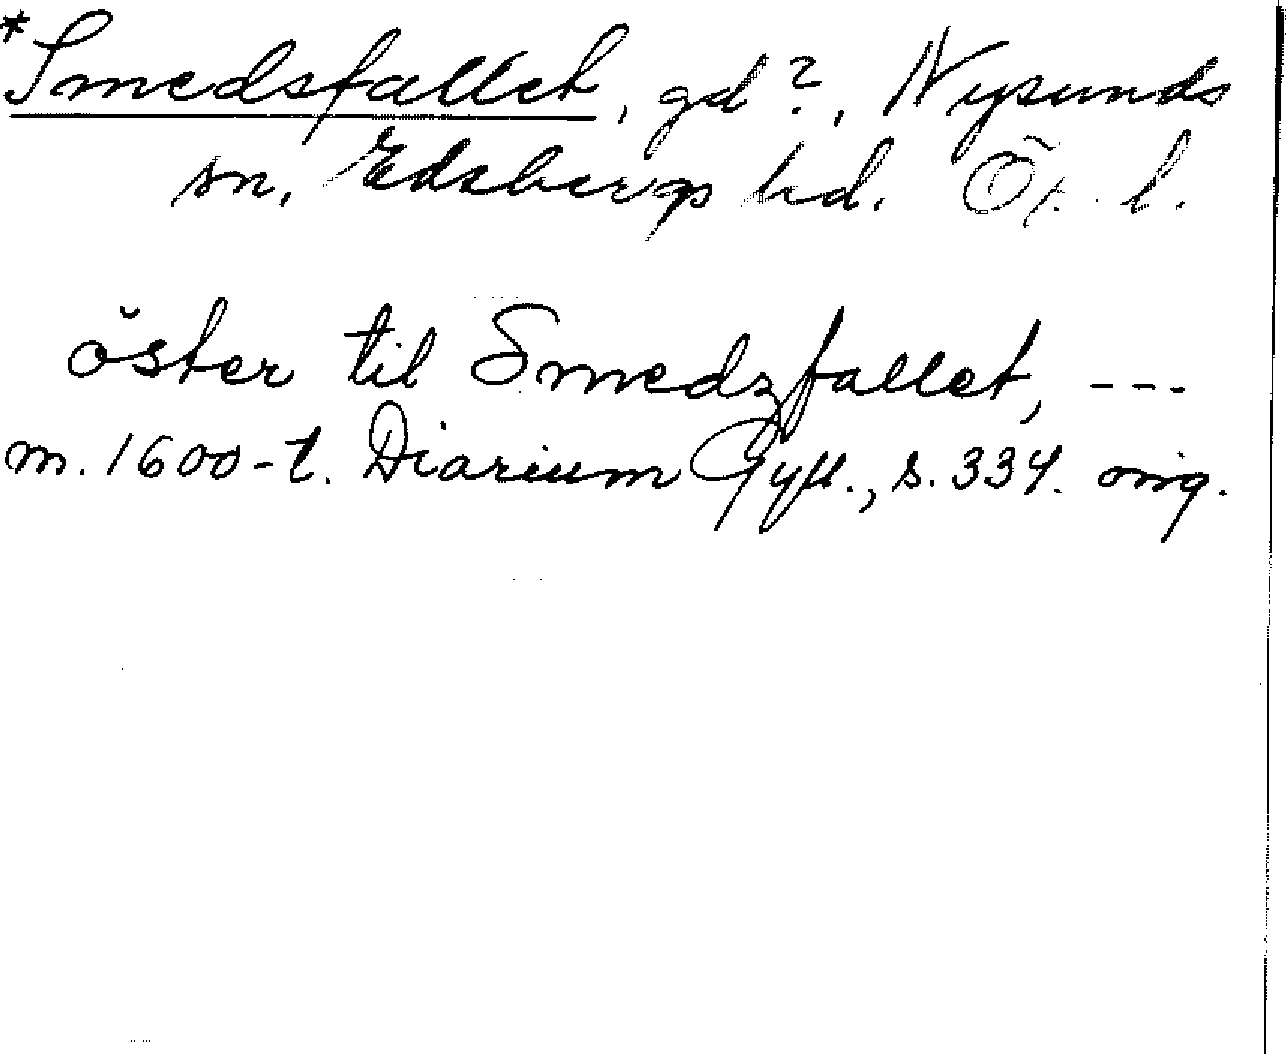 *Smedsfallet, gd?, Nysunds
sn. Edsbergs hd. Ör. l.
öster til Smedzfallet, ---
m. 1600-t. Diarium Gyll., s. 334. orig.